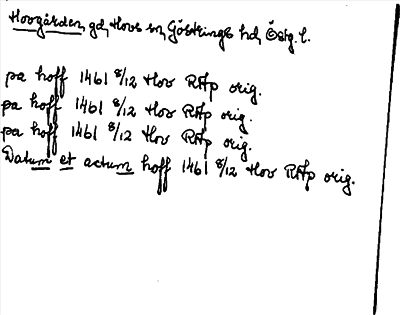 Hovgården, gd, Hovs sn Göstrings hd, Östg. l.
pa hoff 1461 8/12 Hov RAp orig.
pa hoff 1461 8/12 Hov RAp orig.
pa hoff 1461 8/12 Hov RAp orig.
Datum et actum hoff 1461 8/12 Hov RAp orig.